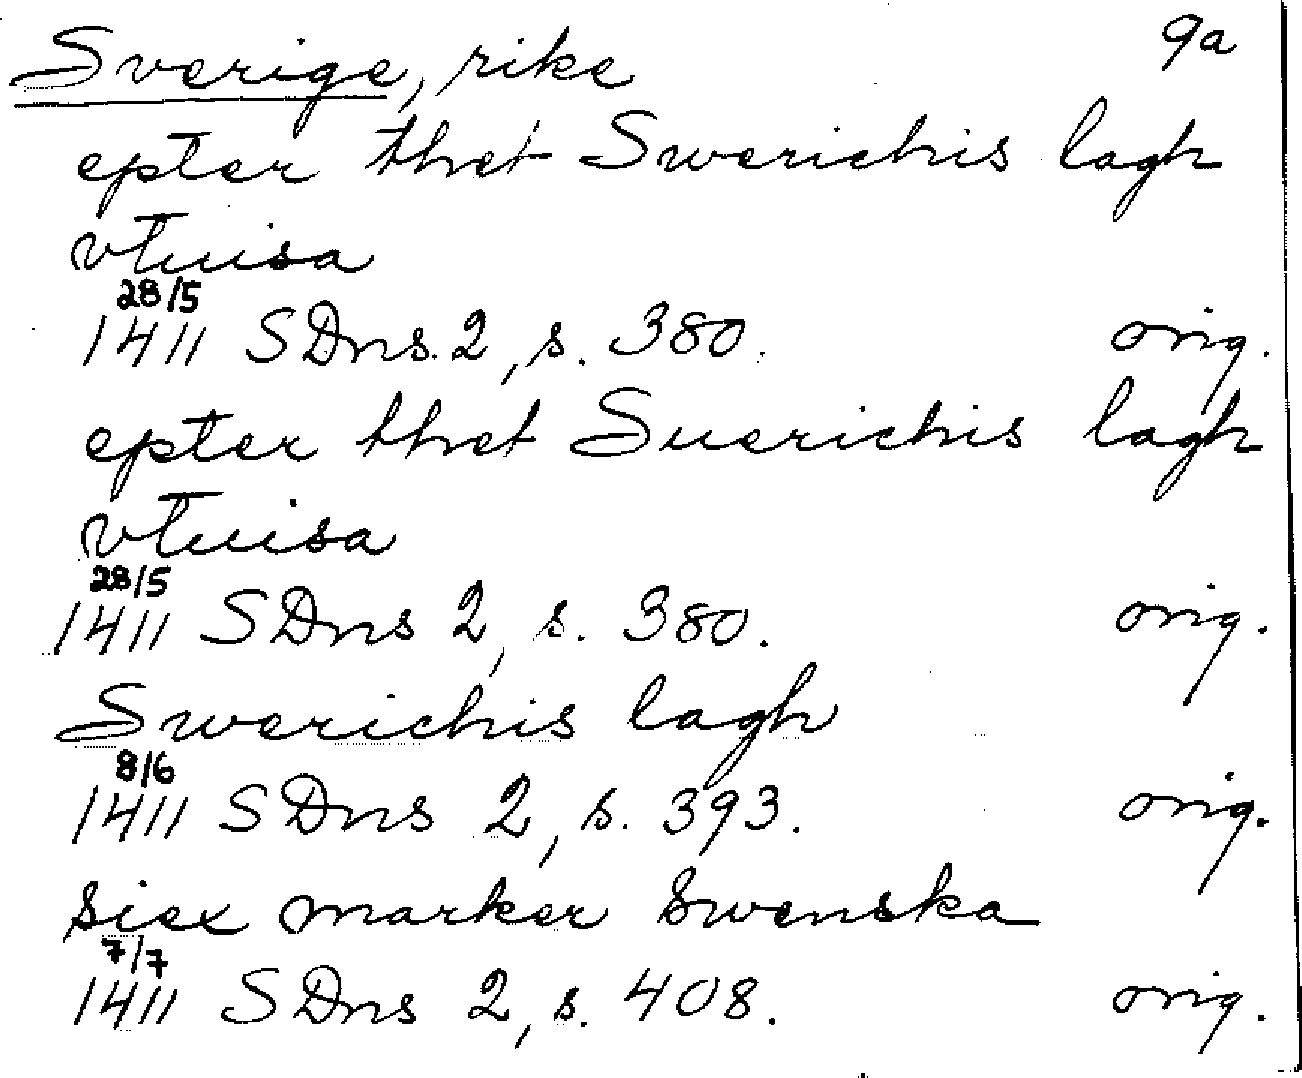 Sverige, rike 9a
epter thet Swerichis lagh
vtuisa
28/5
1411 SDns. 2, s. 380. orig.
epter thet Suerichis lagh
vtuisa
28/5
1411 SDns 2, s. 380. orig.
Swerichis lagh
8/6
1411 SDns 2, s. 393. orig.
siex marker swenska
7/7
1411 SDns 2, s. 408. orig.